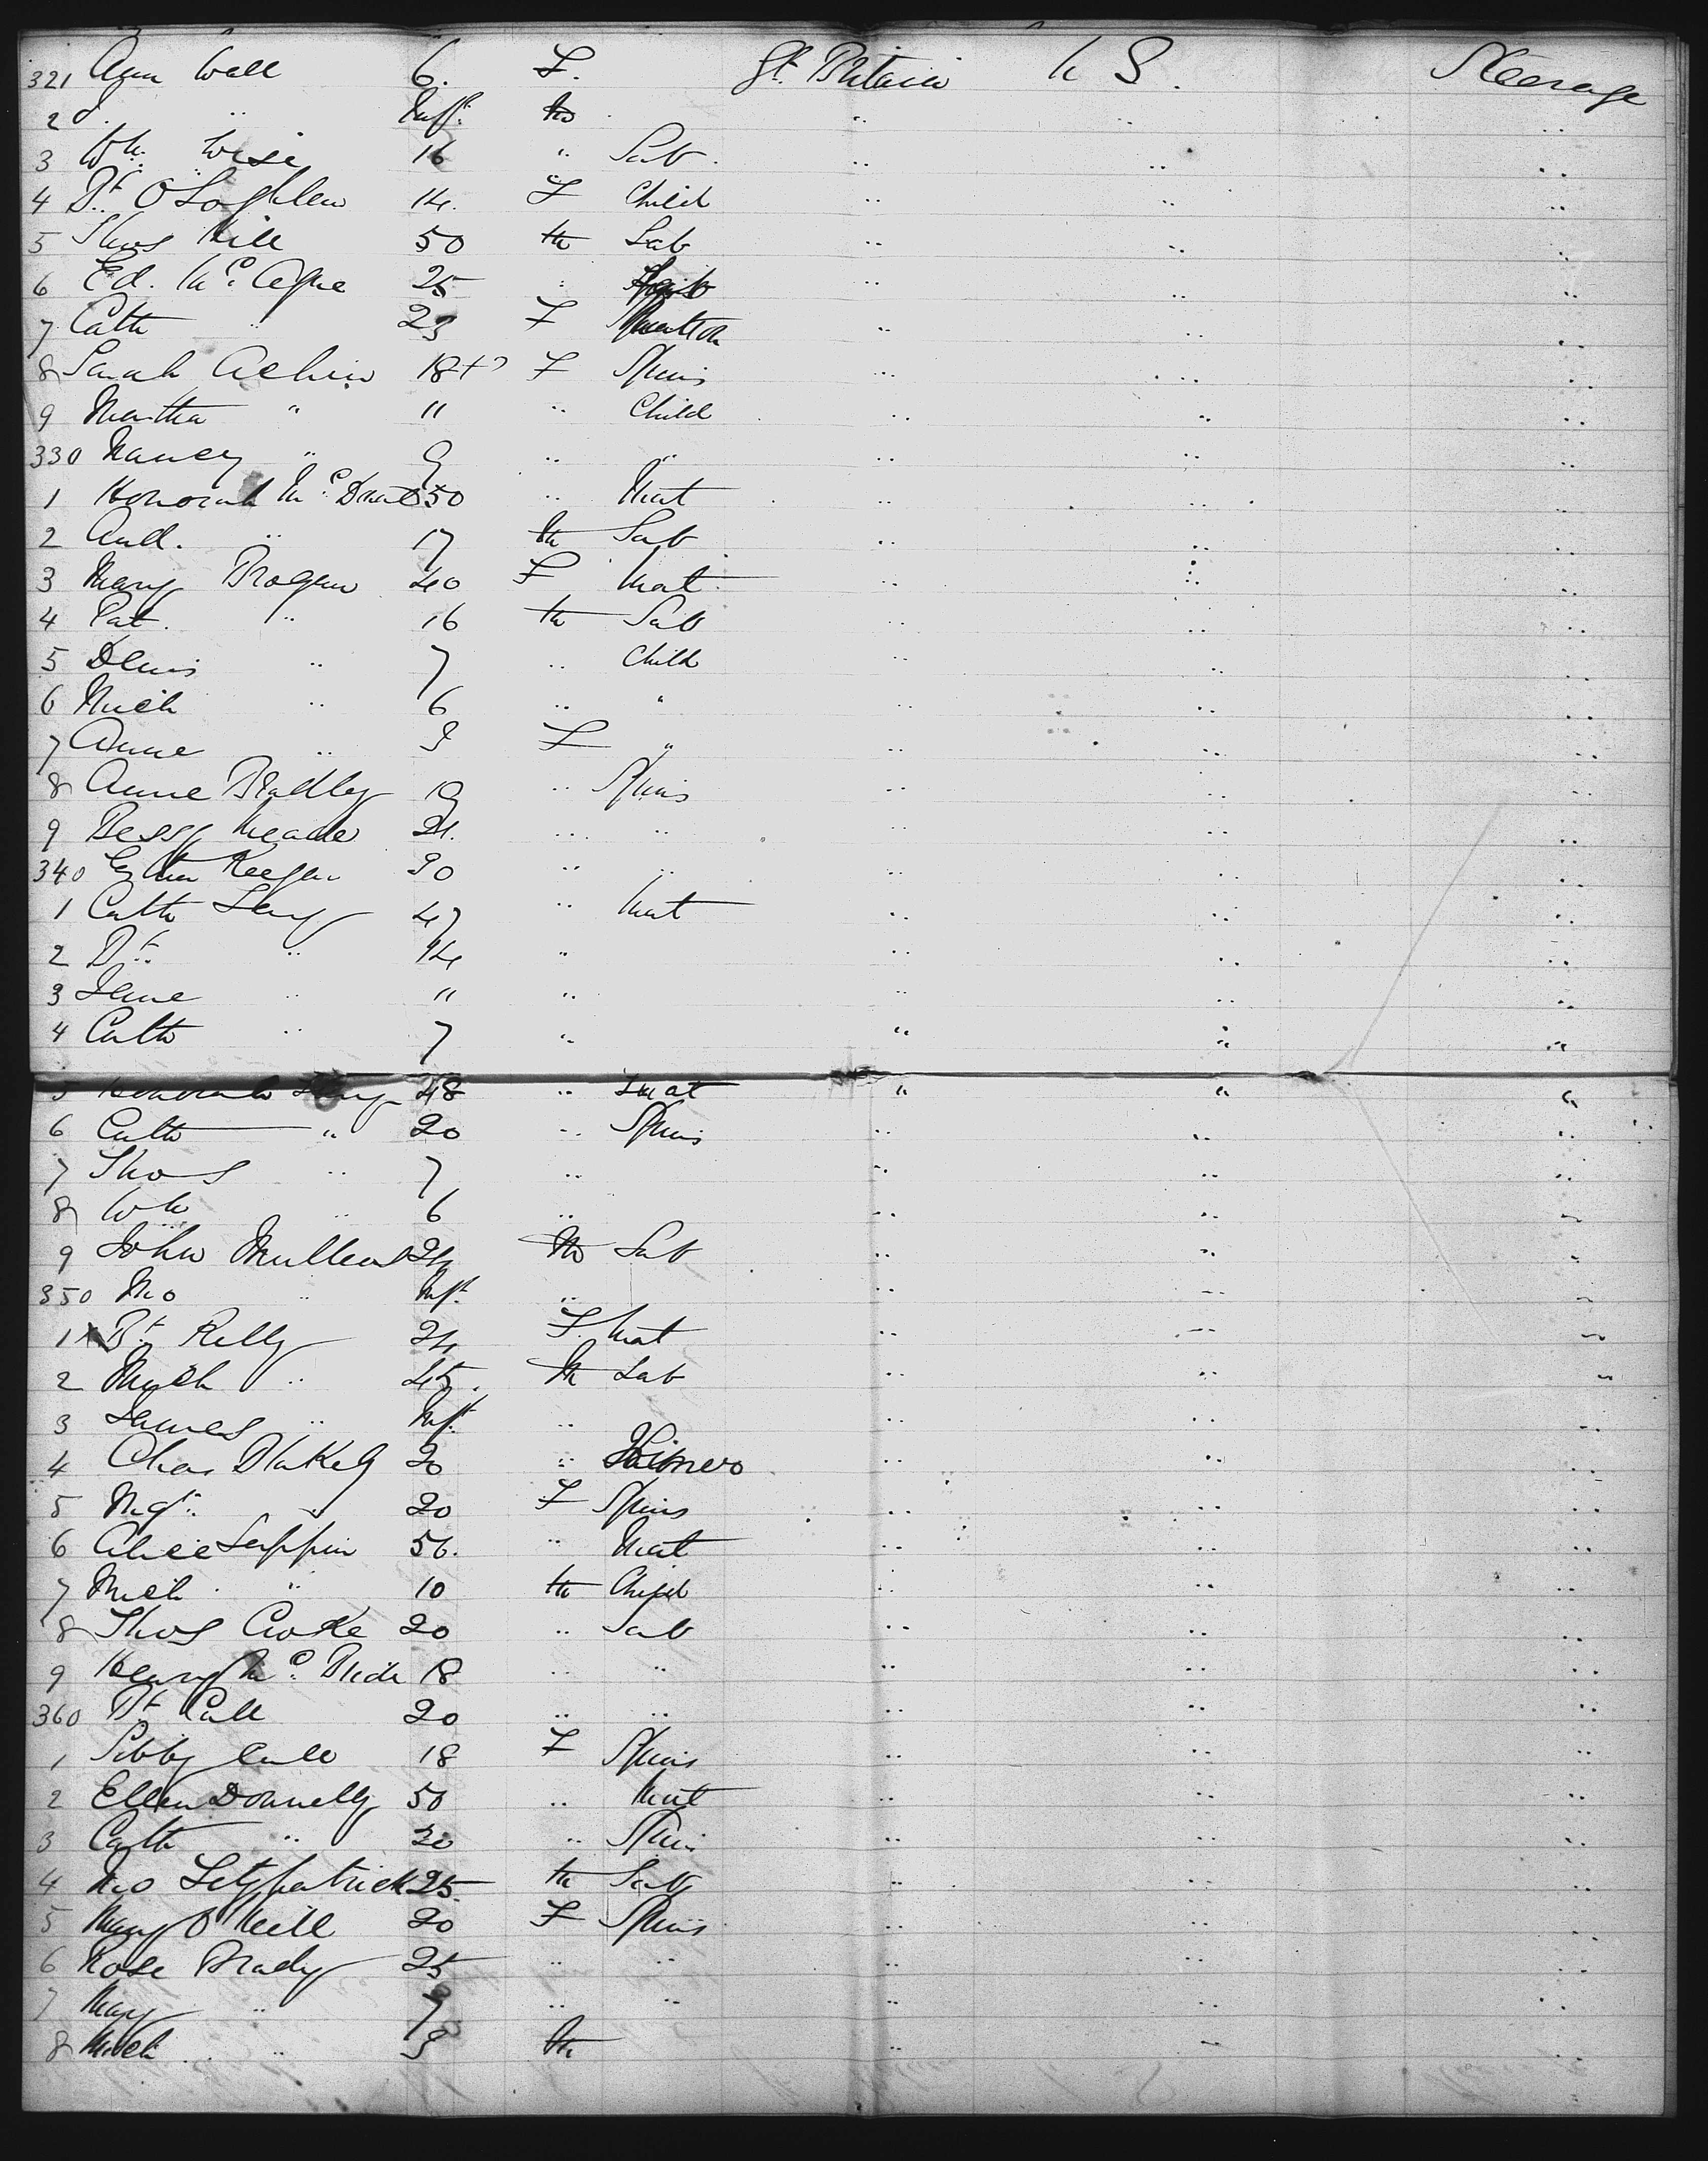 321 Ann Wall 6. F. Gt. Britain U S. Steerage
2 J. " Inft. M " " "
3 Wm. Wise 16 " Lab. " " "
4 Bt. O'Loghlen 14. F Child " " "
5 Thos Hill 50 M Lab " " "
6 Ed. McCague 25 " " " "
7 Cath " 23 F Matron " " "
8 Sarah 18 F Spins " " "
9 Martha " 11 " Child " " "
330 Nancy " 9 " " " " "
1 Honorah 50 " Mat " " "
2 And. " 17 M Lab " " "
3 Mary Brogan 40 F Mat " " "
4 Pat. " 16 M Lab " " "
5 Denis " 7 " Child " " "
6 Mich " 6 " " " " "
7 Anne " 3 F " " " "
8 Anne Bradley 19 " Spins " " "
9 Bessy Meade 21. " " " " "
340 Esther Keegan 30 " " " " "
1 Cath 47 " Mat " " "
2 Bt. " 14 " " " "
3 Jane " 11 " " " "
4 Cath " 7 " " " "
5 Honorah 48 " Mat " " "
6 Cath " 20 " Spins " " "
7 Thos " 7 " " " "
8 Wm " 6 " " " "
9 John Mullens 24 M Lab " " "
350 Mo " Inft. " " " "
1 x Bt. Reilly 24 F. Mat " " "
2 Mich " 45. M Lab " " "
3 James " Inft. " " " "
4 Chas Blakely 20 " " " "
5 Mgt. " 20 F Spins " " "
6 Alice Lappin 56. " Mat " " "
7 Mich. " 10 M Child " " "
8 Thos Cooke 20 " Lab " " "
9 Henry McBride 18 " " " " "
360 Pt. Call 20 " " " " "
1 Sibby Call 18 F Spins " " "
2 Ellen Donnelly 50 " Mat " " "
3 Cath " 20 " Spin " " "
4 Mo Fitzpatrick 25. M Lab " " "
5 Mary O'Neill 20 F Spins " " "
6 Rose Brady 25 " " " " "
7 Mary " 7 " " " " "
8 Mich " 3 M " " "